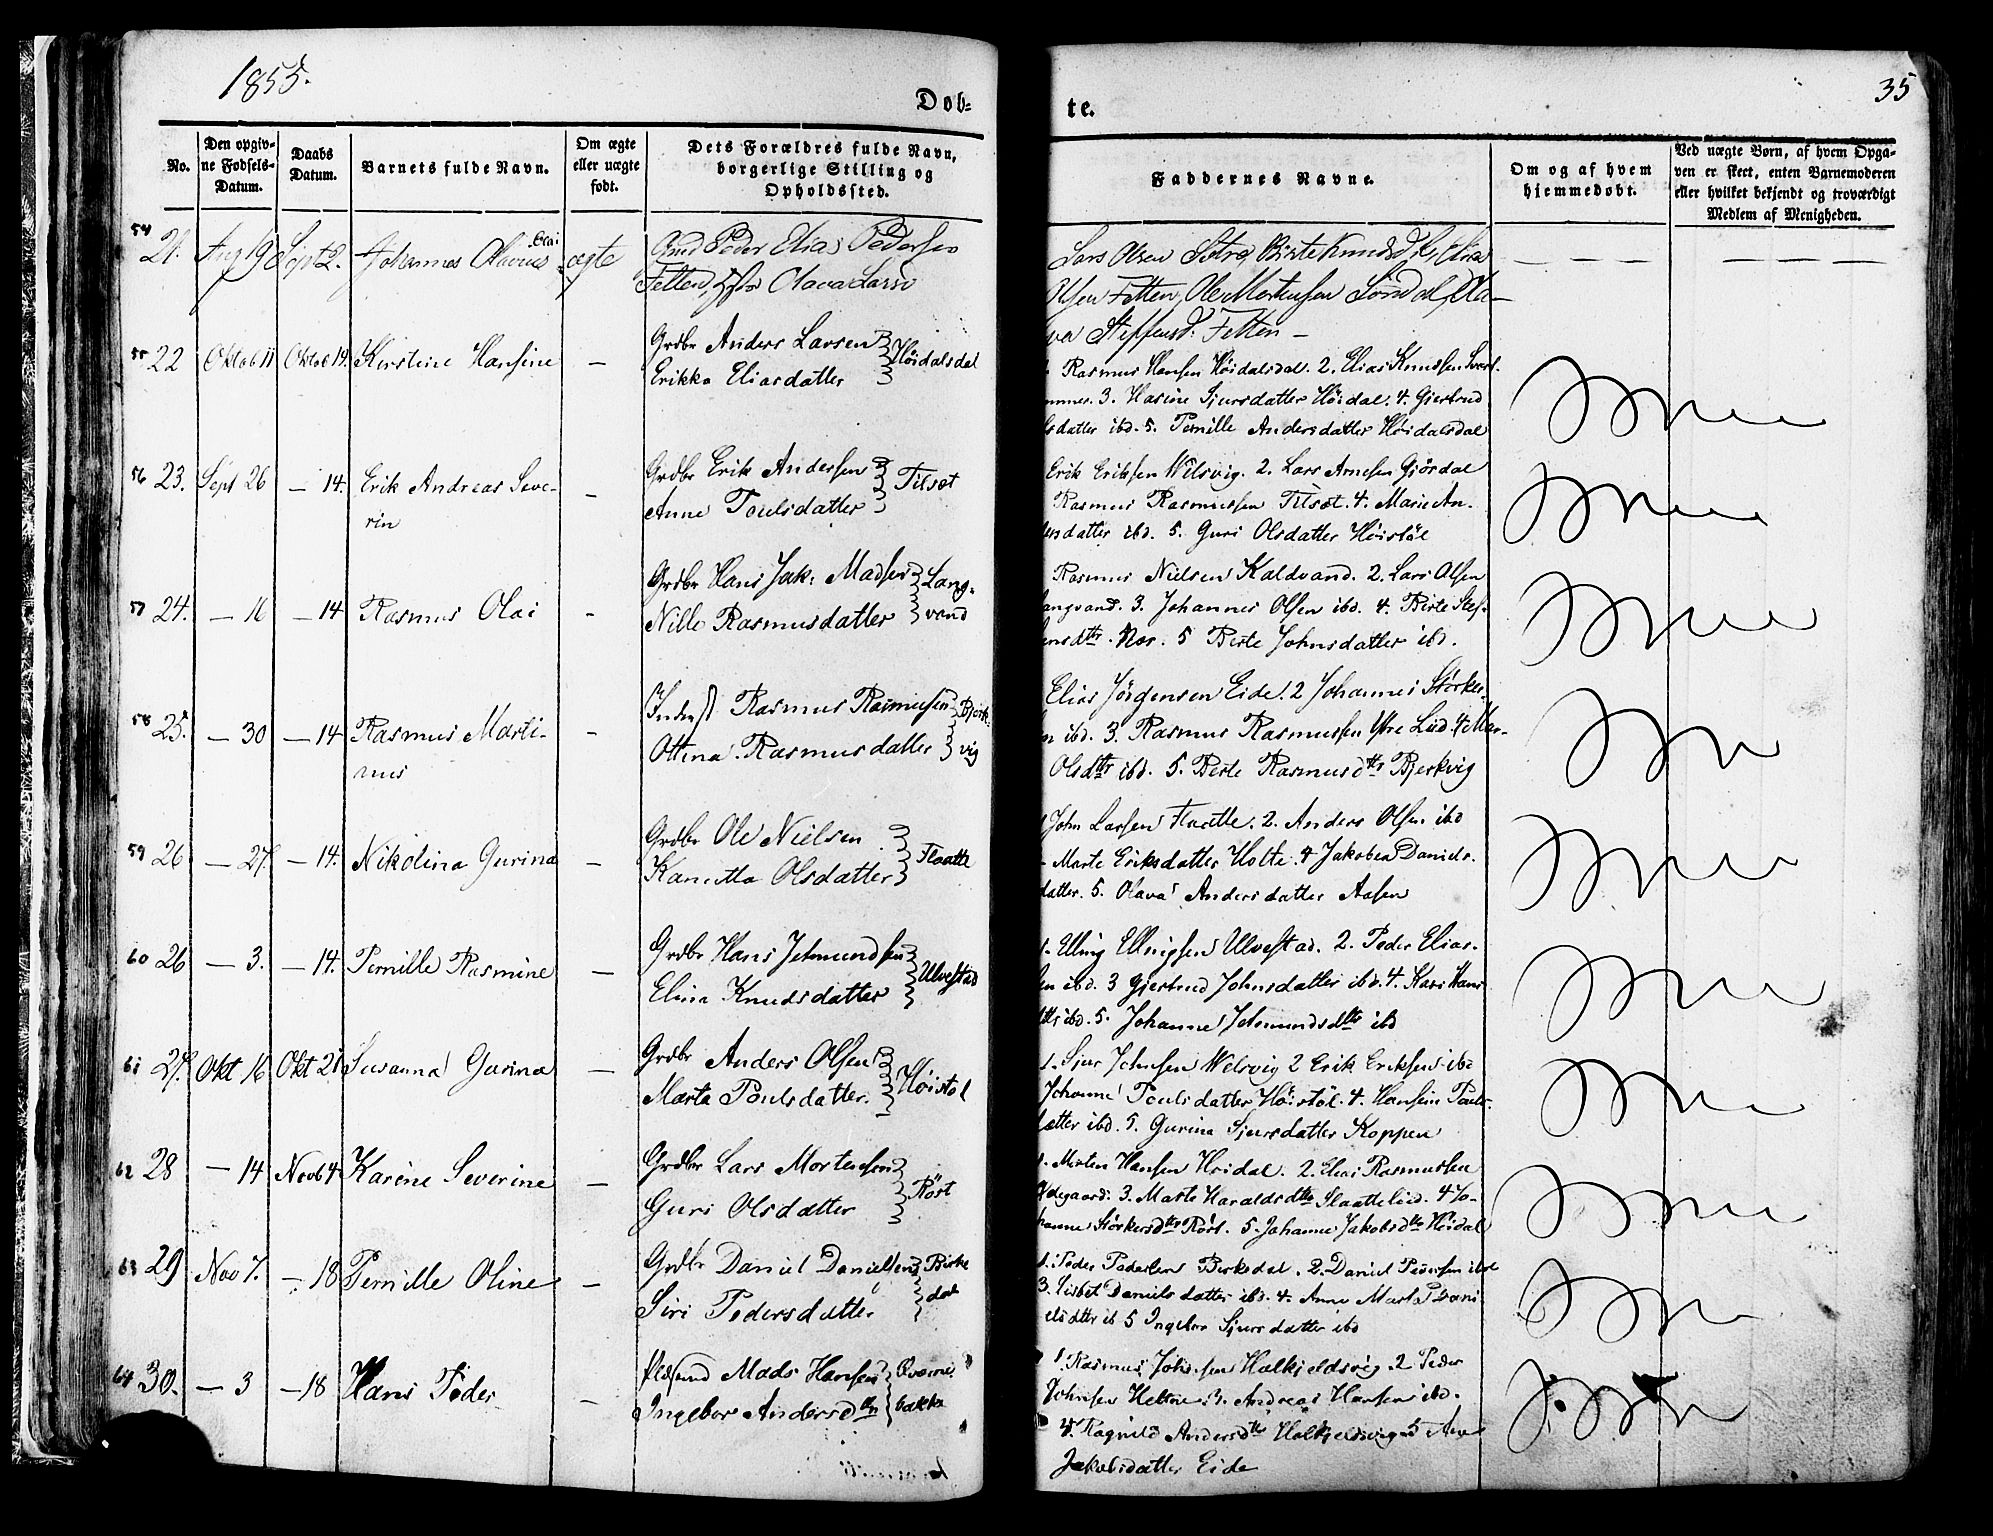 1855.
Døb=
te.
35
No.
Den opgiv-
ne Fødsels-
Datum.
Daabs
Datum.
Barnets fulde Navn.
Om ægte
eller uægte
født.
Dets Forældres fulde Navn,
borgerlige Stilling og
Opholdssted.
Faddernes Navne.
Om og af hvem
hjemmedøbt.
Ved uægte Børn, af hvem Opga-
ven er skeet, enten Barnemoderen
eller hvilket bekjendt og troværdigt
Medlem af Menigheden.
54
21. Aug 19 Sept 2. Johannes Olavius Elai ægte Peder Elias Pedersen
Fetten, Olava Larsd
Lars Olsen Sætre, Birte Knudsd
Olsen Fetten, Ole Mortensen
Steffensd. Fetten —
55 22 Oktob 11 Oktob 14. Kirstine Hansine — Grdbr Anders Larsen Høidalsdal
Erikka Eliasdatter
Rasmus Hansen Høidalsdal. 2. Elias Knudsen
3. Hasine Sjursdatter Høidal. 4. Giertrud
datter ibd. 5. Pernille Andersdatter Høidalsdal
56 23. Sept 26 — 14. Erik Andreas Seve-
rin
— Grdbr Erik Andersen Tilset
Anne Poulsdatter
Erik Eriksen Welsvig. 2. Lars Arnesen Gjørdal
Rasmus Rasmussen Tilset. 4. Marie An-
dersdatter ibd. 5. Guri Olsdatter Høistøl
57 24. — 16 — 14 Rasmus Olai — Grdbr Hans Jak: Madsen Lang-
Nille Rasmusdatter vand
Rasmus Nielsen Kaldvand. 2. Lars Olsen
Langvand. 3. Johannes Olsen ibd. 4. Berte Stef-
fensdttr. Nos. 5 Berte Johnsdatter ibd.
58 25. — 30 — 14 Rasmus Marti-
nus
— Inderst Rasmus Rasmussen Bjerk-
Ottina Rasmusdatter vig
Elias Jørgensen Eide. 2 Johannes Størker-
n ibd. 3. Rasmus Rasmussen Ytre Lid. 4 Mar-
Olsdttr ibd. 5. Berte Rasmusdttr Bjerkvig
59 26 — 27. — 14. Nikolina Gurina — Grdbr Ole Nielsen Flaatte
Olsdatter
John Larsen Flaatte. 2. Anders Olsen ibd
Marte Eriksdatter Holte. 4 Jakobea Daniels-
datter. 5. Olava Andersdatter Aasen
60 26 — 3. — 14. Pernille Rasmine — Grdbr Hans Jetmundsen Ulvestad
Elina Knudsdatter
1. Elling Ellingsen Ulvestad. 2. Peder Elias-
sen ibd. 3 Gjertrud Johnsdatter ibd. 4. Kari Hans
dttr ibd. 5. Johanne Jetmundsdttr ibd
61 27. Okt 16 Okt 21 Susanna Gurina — Grdbr Anders Olsen Høistøl
Marta Poulsdatter.
1. Sjur Johnsen Welsvig 2 Erik Eriksen ibd
Johanne Poulsdatter Høistøl. 4. Hansine Pouls-
datter ibd. 5. Gurina Sjursdatter Koppen
62 28 — 14 Novb 4 Karine Severine — Grdbr Lars Mortensen Røst
Guri Olsdatter
1. Morten Hansen Høidal. 2. Elias Rasmussen
Ødegaard. 3. Marte Haraldsdttr Flaattelied. 4 Jo-
hanne Størkersdttr Røst. 5. Johanne Jakobsdttr Høidal
63 29 Nov 7. — 18 Pernille Oline — Grdbr Daniel Danielsen Birke
Siri Pedersdatter dal
1. Peder Pedersen Berkedal. 2. Daniel Pedersen ibd
3. Lisbet Danielsdatter ibd. 4. Anne Marta Dani
elsdttr ib 5 Ingebor Sjursdatter ibd
64 30. — 3 — 18 Hans Peder — Mads Hansen Qvarne
Ingebor Andersdttr bakke
1. Rasmus Johnsen Halkjeldsvig. 2 Peder
Johnsen 3. Andreas Hansen ibd.
4. Ragnild Andersdttr Halkjeldsvig 5
Jakobsdatter Eide